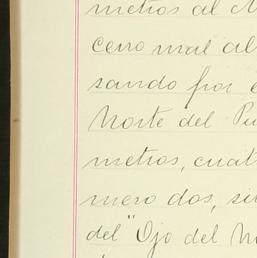 metros al N
cero mal al
sando por e
Norte del Pu
metros, cuat
mero dos, si
del "Ojo del No